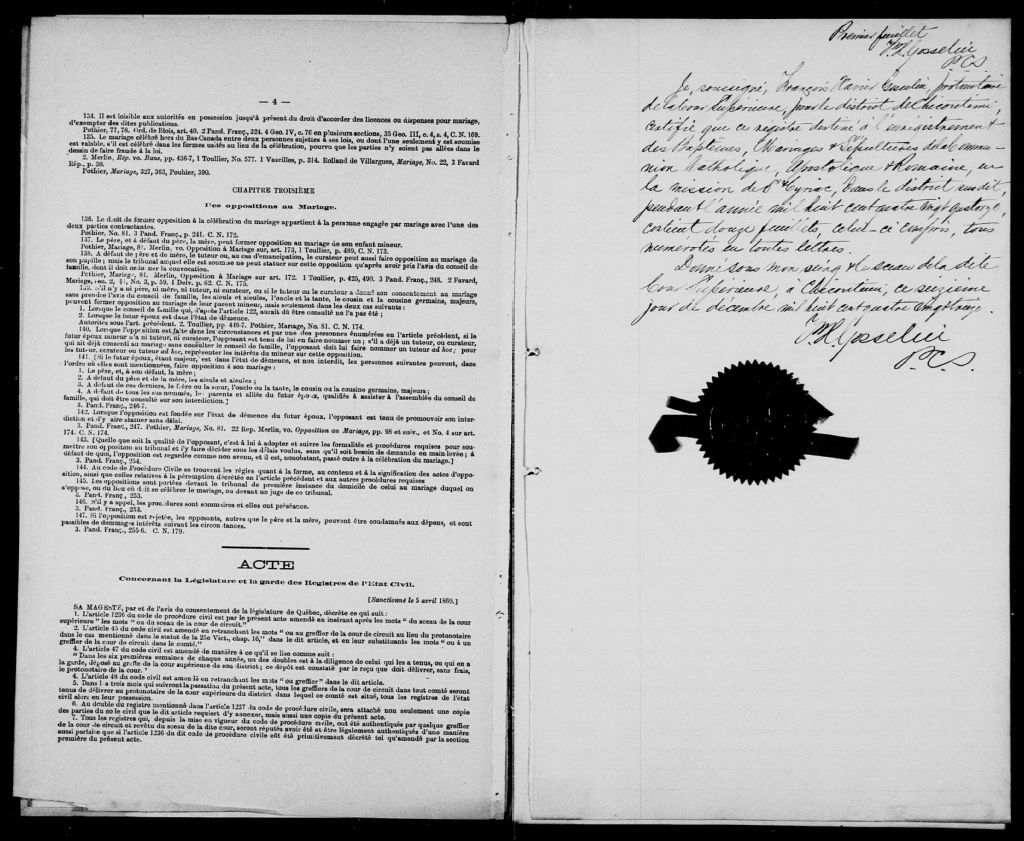 — 4 —
134. Il est loisible aux autorités en possession jusqu'à présent du droit d'accorder des licences ou dispenses pour mariage,
d'exempter des dites publications.
Pothier, 77, 78. Ord. de Blois, art. 40. 2 Pand. Franç., 324. 4 Geo. IV, c. 76 en plusieurs sections, 35 Geo. III, c. 4, s. 4, C. N. 169.
135. Le mariage célébré hors du Bas-Canada entre deux personnes sujettes à ses lois, ou dont l'une seulement y est soumise
est valable, s'il est célébré dans les formes usités au lieu de la célébration, pourvu que les parties n'y soient pas allées dans le
dessin de faire fraude à la loi.
2. Merlin, Rep. vo. Bans, pp. 436-7, 1 Toullier, No. 577. 1 Vazeilles, p. 314. Rolland de Villargues, Mariage, No. 22, 3 Favard
Rép., p. 30.
Pothier, Mariage, 327, 363, Pouhier, 390.
CHAPITRE TROISIÈME
Des oppositions au Mariage.
136. Le droit de former opposition à la célébration du mariage appartient à la personne engagée par mariage avec l'une des
deux parties contractantes.
Pothier, No. 81. 3 Pand. Franç., p. 241. C. N. 172.
137. Le père, et à défaut du père, la mère, peut former opposition au mariage de son enfant mineur.
Pothier, Mariage, 81. Merlin, vo. Opposition à Mariage sur, art. 173, 1 Toullier, p. 489, C. N. 173.
138. A défaut de père et de mère, le tuteur ou, au cas d'émancipation, le curateur peut aussi faire opposition au mariage de
son pupille; mais le tribunal auquel elle est soumise ne peut statuer sur cette opposition qu'après avoir pris l'avis du conseil de
famille, dont il doit ordonner la convocation.
Pothier, Mariage, 81. Merlin, Opposition à Mariage sur art. 172. 1 Toullier, p. 425, 490. 3 Pand. Franç., 248. 2 Favard,
Mariage, sec. 2, §1, No. 3, p. 59. 1 Delv. p. 62. C. N. 175.
139. S'il n'y a ni père, ni mère, ni tuteur, ni curateur, ou si le tuteur ou le curateur a donné son consentement au mariage
sans prendre l'avis du conseil de famille, les aïeuls et aïeules, l'oncle et la tante, le cousin et la cousine germains, majeurs,
peuvent former opposition au mariage de leur parent mineur, mais seulement dans les deux cas suivants:
1. Lorsque le conseil de famille qui, d'après l'article 122, aurait dû être consulté ne l'a pas été;
2. Lorsque le futur époux est dans l'état de démence.
Autorités sous l'art. précédent. 2. Toullier, pp. 446-7. Pothier, Mariage, No. 81. C. N. 174.
140. Lorsque l'opposition est faite dans les circonstances et par une des personnes énumérées en l'article précédent, si le
futur époux mineur n'a ni tuteur, ni curateur, l'opposant est tenu de lui en faire nommer un; s'il a déjà un tuteur, ou curateur,
qui ait déjà consenti au mariage sans consulter le conseil de famille, l'opposant doit lui faire nommer un tuteur ad hoc; pour
les tuteur, curateur ou tuteur ad hoc, représenter les intérêts du mineur sur cette opposition.
141. [Si le futur époux, étant majeur, est dans l'état de démence, et non interdit, les personnes suivantes peuvent, dans
l'ordre où elles sont mentionnées, faire opposition à son mariage:
1. Le père, et, à son défaut, la mère;
2. A défaut du père et de la mère, les aïeuls et aïeules;
3. A défaut de ces derniers, le frère ou la sœur, l'oncle ou la tante, le cousin ou la cousine germains, majeurs;
4. A défaut de tous les sus-nommés, les parents et alliés du futur époux, qualifiés à assister à l'assemblée du conseil de
famille, qui doit être consulté sur son interdiction.]
3. Pand. Franç., 246-7.
142. Lorsque l'opposition est fondée sur l'état de démence du futur époux, l'opposant est tenu de promouvoir son inter-
diction et d'y faire statuer sans délai.
3. Pand. Franç., 247. Pothier, Mariage, No. 81. 22 Rep. Merlin, vo. Opposition au Mariage, pp. 98 et suiv., et No. 4 sur art.
174. C. N. 174.
143. [Quelle que soit la qualité de l'opposant, c'est à lui à adopter et suivre les formalités et procédures requises pour sou-
mettre son opposition au tribunal et l'y faire décider sous les délais voulus, sans qu'il soit besoin de demande en main levée; à
défaut de quoi, l'opposition est regardée comme non avenu, et il est, nonobstant, passé outre à la célébration du mariage.]
3. Pand. Franç., 254.
144. Au code de Procédure Civile se trouvent les règles quant à la forme, au contenu et à la signification des actes d'oppo-
sition, ainsi que celles relatives à la péremption décrétée en l'article précédent et aux autres procédures requises
145. Les oppositions sont portées devant le tribunal de première instance du domicile de celui au mariage duquel on
s'oppose, ou du lieu où doit se célébrer le mariage, ou devant un juge de ce tribunal.
3. Pand. Franç., 253.
146. S'il y a appel, les procédures sont sommaires et elles ont préséance.
3. Pand. Franç., 253.
147. Si l'opposition est rejetée, les opposants, autres que le père et la mère, peuvent être condamnés aux dépens, et sont
passibles de dommages intérêts suivant les circonstances.
3. Pand. Franç., 255-6. C. N. 179.
ACTE
Concernant la Législature et la garde des Registres de l'Etat Civil.
[Sanctionné le 5 avril 1869.]
SA MAGESTÉ, par et de l'avis du consentement de la législature de Québec, décrète ce qui suit:
1. L'article 1236 du code de procédure civil est par le présent acte amendé en insérant après les mots "du sceau de la cour
supérieure" les mots "ou du sceau de la cour de circuit."
2. L'article 45 du code civil est amendé en retranchant les mots "ou au greffier de la cour de circuit au lieu du protonotaire
dans le cas mentionné dans le statut de la 25e Vict., chap. 16," dans le dit article, et en leur substituants les mots "ou à un
greffier de la cour de circuit dans le comté."
4. L'article 47 du code civil est amendé de manière à ce qu'il se lise comme suit:
"Dans les six premières semaines de chaque année, un des doubles est à la diligence de celui qui les a tenus, ou qui en a
la garde, déposé au greffe de la cour supérieure de son district; ce dépôt est constaté par le reçu que doit délivrer, sans frais,
le protonotaire de la cour."
4. L'article 48 du code civil est amendé en retranchant les mots "ou greffier" dans le dit article.
5. Dans les trois mois qui suivront la passation du présent acte, tous les greffiers de la cour de circuit dans tout comté seront
tenus de délivrer au protonotaire de la cour supérieure du district dans lequel ce comté est situé, tous les registres de l'état
civil alors en leur possession.
6. Au double du registre mentionné dans l'article 1237 du code de procédure civile, sera attaché non seulement une copie
des parties du code civil que le dit article requiert d'y annexer, mais aussi une copie du présent acte.
7. Tous les registres qui, depuis la mise en vigueur du code de procédure civile, ont été authentiqués par quelque greffier
de la cour de circuit et revêtu du sceau de la dite cour, seront réputés avoir été et être légalement authentiqués d'une manière
aussi parfaite que si l'article 1236 du dit code de procédure civile eût été primitivement décrété tel qu'amendé par la section
première du présent acte.
Premier feuillet
F. X. Gosselin
P.C.S.
Je, soussigné, François Xavier Gosselin, protonotaire
de la Cour Supérieure, pour le district de Chicoutimi,
certifie que ce régistre destiné à l'enrégistrement
des Baptêmes, Mariages & Sépultures de la Commu-
nion Catholique, Apostolique & Romaine, en
la mission de St Cyriac, dans le district susdit,
pendant l'année mil huit cent quatre vingt quatorze,
contient douze feuillets, celui-ci compris, tous
numérotés en toutes lettres.
Donné sous mon seing & le sceau de la dite
Cour Supérieure, à Chicoutimi, ce suzième
jour de décembre mil huit cent quatre vingt treize.
F. X. Gosselin
P.C.S.